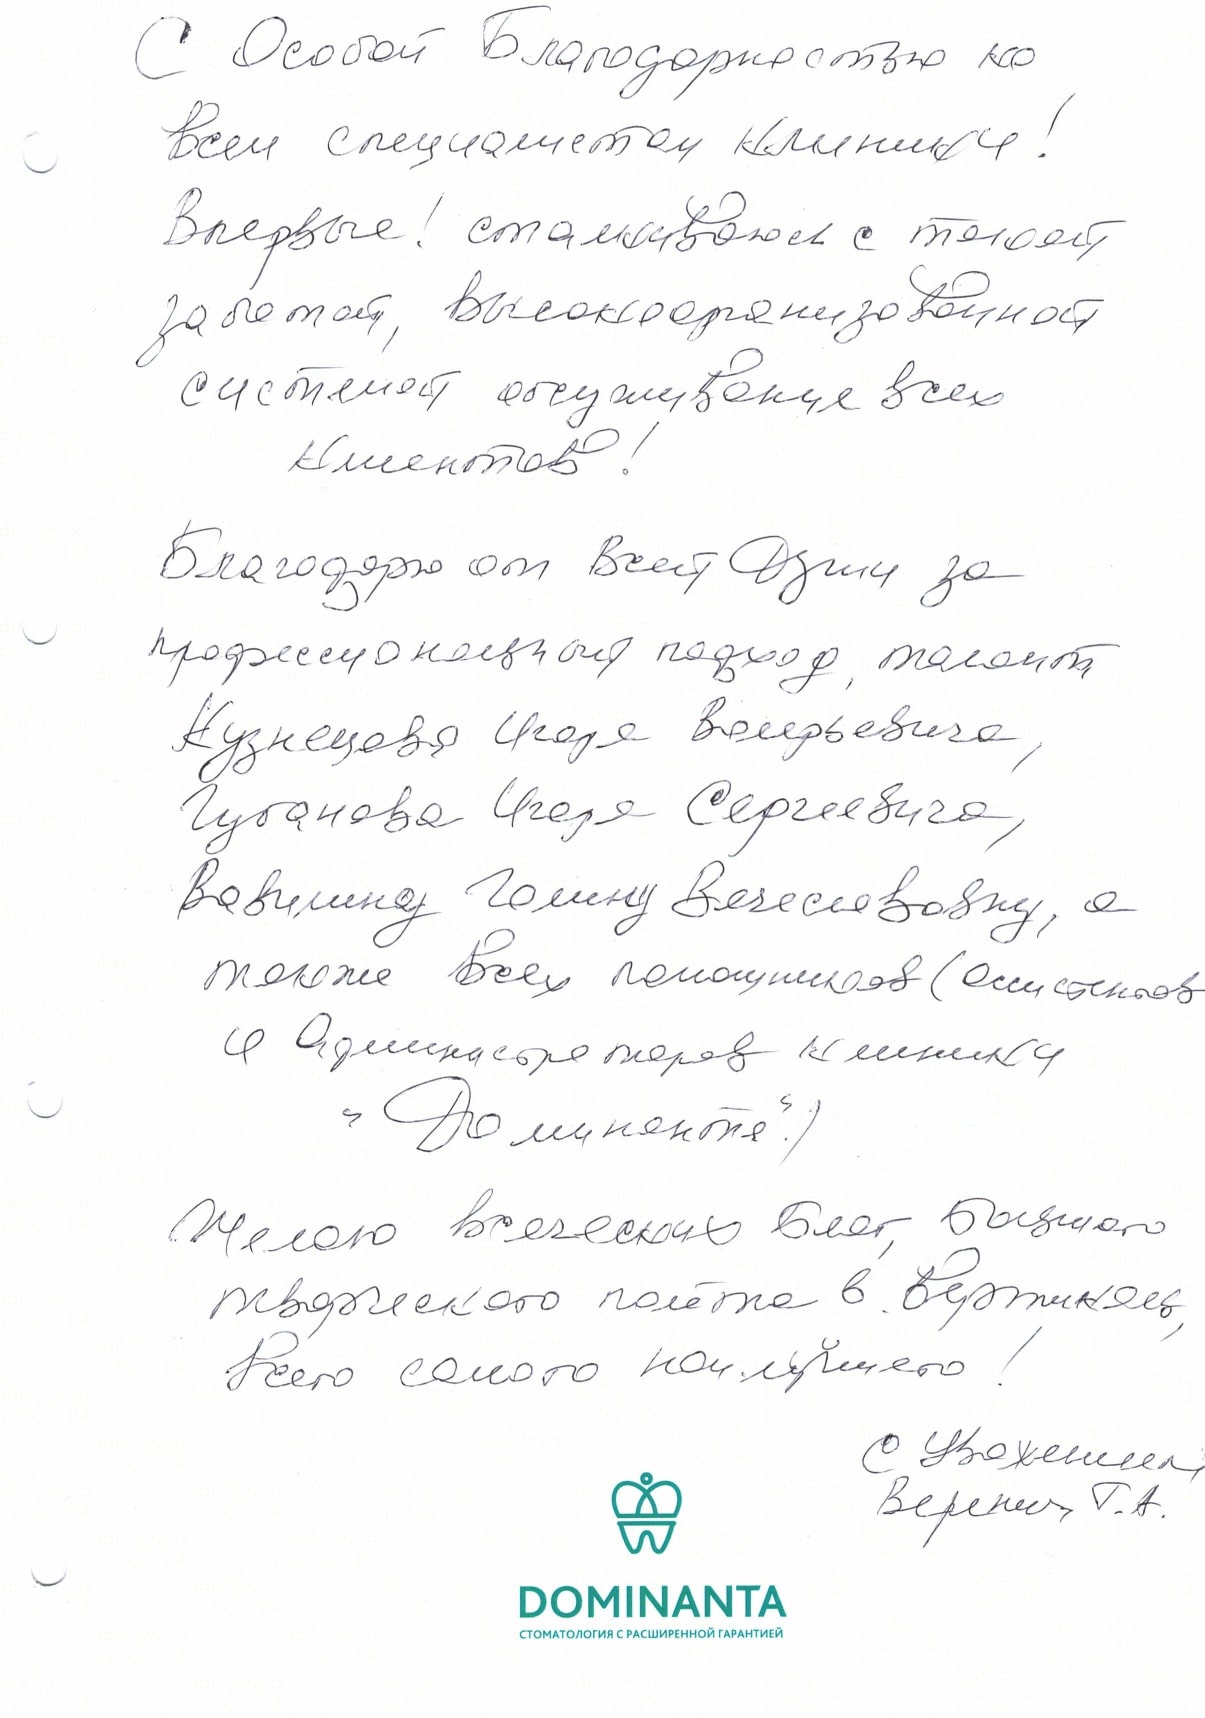 С Особой Благодарностью ко
всем специалистам клиники!
Впервые! сталкиваюсь с такой
заботой, высокоорганизованной
системой обслуживания всех
клиентов!
Благодарю от Всей Души за
профессиональный подход, талант
Кузнецова Игоря Валерьевича,
Губанова Игоря Сергеевича,
Вавилину Галину Вячеславовну, а
также всех помощников (ассистентов
и администраторов клиники
"Доминанта".)
Желаю всяческих благ, большого
творческого полёта в вертикаль,
всего самого наилучшего!
С Уважением,
Г.А.
DOMINANTA
СТОМАТОЛОГИЯ С РАСШИРЕННОЙ ГАРАНТИЕЙ